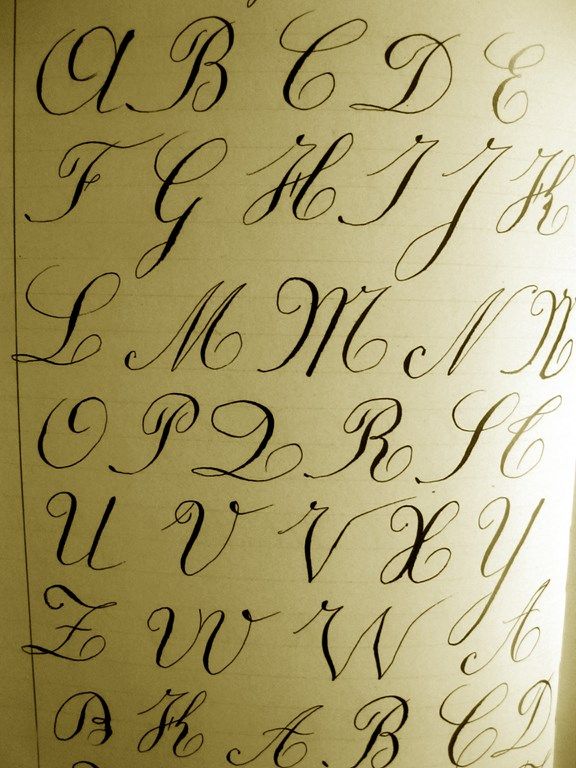 A B C D E
F G H I J K
L M M N N
O P Q R S T
U V V X Y
Z W W A
B K A B C D